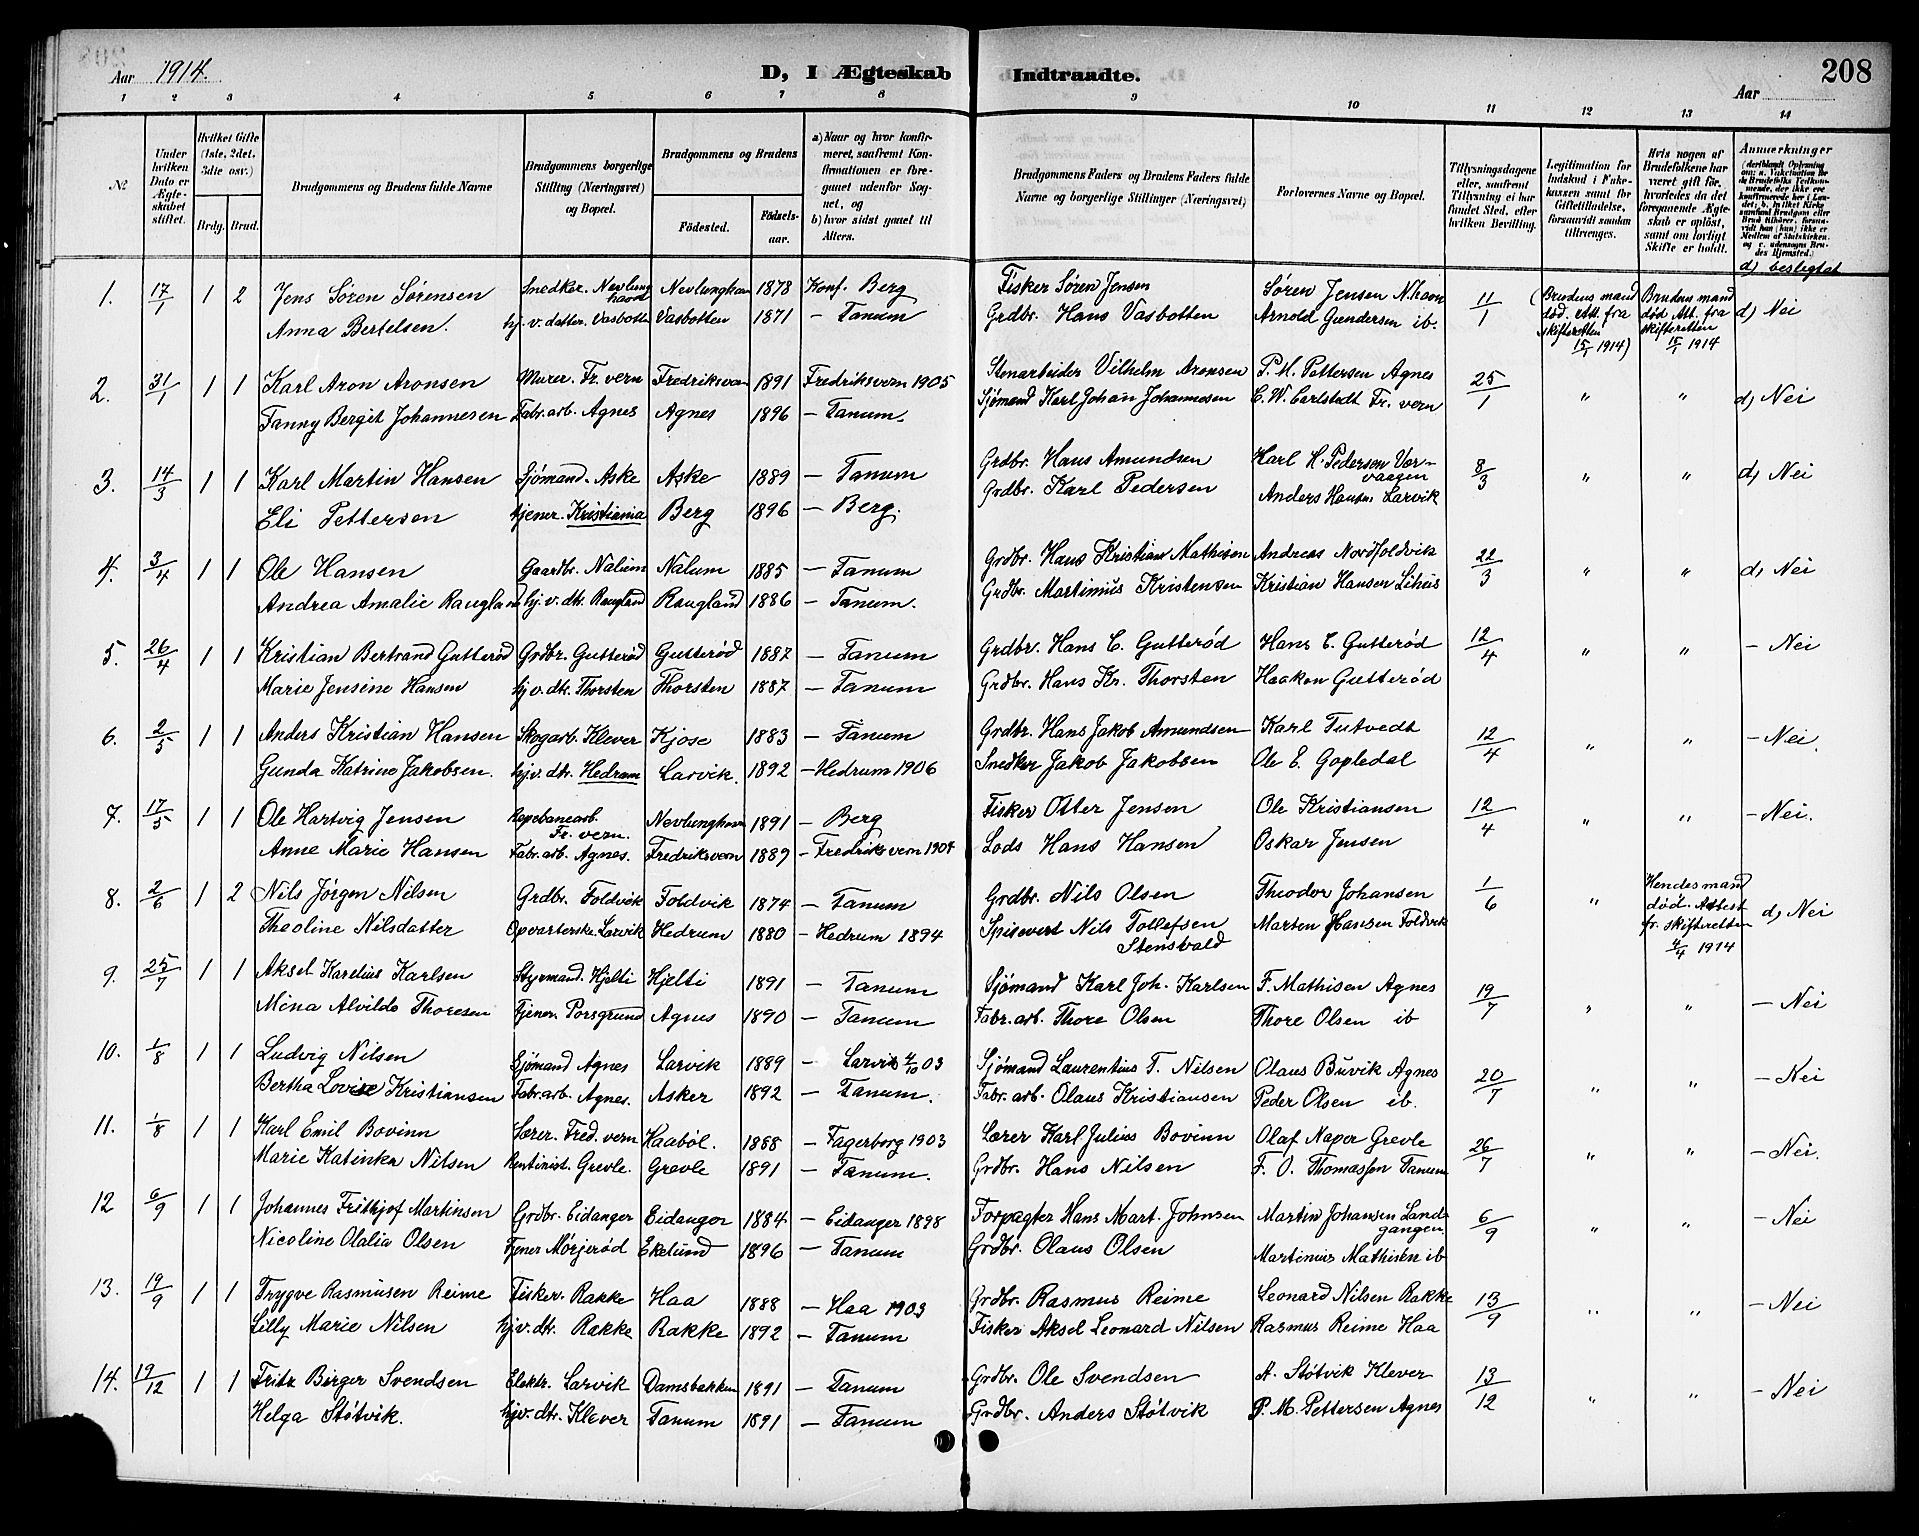 Aar 1914.
D, I Ægteskab Indtraadte.
208
Aar
1 2 3 4 5 6 7 8 9 10 11 12 13 14
№
Under hvilken Dato er Ægteskabet stiftet.
Hvilket Gifte (1ste, 2det, 3die osv.)
Brdg. Brud.
Brudgommens og Brudens fulde Navne
Brudgommens borgerlige Stilling (Næringsvei) og Bopæl.
Brudgommens og Brudens
Fødested.
Fødsels-aar.
a) Naar og hvor konfirmeret, saafremt Konfirmationen er foregaaet udenfor Sognet, og
b) hvor sidst gaaet til Alters.
Brudgommens Faders og Brudens Faders fulde Navne og borgerlige Stillinger (Næringsvei)
Forlovernes Navne og Bopæl.
Tillysningsdagene eller, saafremt Tillysning ei har fundet Sted, efter hvilken Bevilling.
Legitimation for Indskud i Enkekassen samt for Giftetilladelse, forsaavidt saadan tiltrænges.
Hvis nogen af Brudefolkene har været gift før, hvorledes da det foregaaende Ægteskab er opløst, samt om lovligt Skifte er holdt.
Anmerkninger
d) beslegtet
1. 17/1 1 2 Jens Søren Sørensen Snedker. Nevlunghavn Nevlunghavn 1878 Konf. Berg Fisker Søren Jensen Søren Jensen N.havn 11/1 (Brudens mand død. Att. fra skifteretten 15/1 1914) Brudens mand død Att. fra skifteretten 15/1 1914 d) Nei
Anna Bertelsen. hj. v. datter. Vasbotten Vasbotten 1871 – Tanum Grdbr. Hans Vasbotten Arnold Gundersen ib.
2. 31/1 1 1 Karl Aron Aronsen Murer. Fr. vern Fredriksvern 1891 Fredriksvern 1905 Stenarbeider Vilhelm Aronsen P. M. Pettersen Agnes 25/1 " " d) Nei
Fanny Bergit Johannesen Fabr. arb. Agnes Agnes 1896 – Tanum. Sjømand Karl Johan Johannesen C. W. Carlstedt Fr. vern
3. 14/3 1 1 Karl Martin Hansen Sjømand. Aske Aske 1889 – Tanum Grdbr. Hans Amundsen Karl H. Pedersen Vorvaagen 8/3 " " d) Nei
Eli Pettersen tjener. Kristiania Berg 1896 – Berg. Grdbr. Karl Pedersen Anders Hansen Larvik
4. 3/4 1 1 Ole Hansen Gaardbr. Nalum Nalum 1885 – Tanum Grdbr. Hans Kristian Mathisen Andreas Nordfoldvik 22/3 " " d) Nei
Andrea Amalie Raugland hj. v. dtr. Raugland Raugland 1886 – Tanum. Grdbr. Martinius Kristensen Kristian Hansen Lihus
5. 26/4 1 1 Kristian Bertrand Gutterød Grdbr. Gutterød Gutterød 1887 – Tanum Grdbr. Hans C. Gutterød Hans C. Gutterød 12/4 " " – Nei
Marie Jensine Hansen hj. v. dtr. Thorsten Thorsten 1887 – Tanum Grdbr. Hans Kr. Thorsten Haakon Gutterød
6. 2/5 1 1 Anders Kristian Hansen Skogarb. Klever Kjose 1883 – Tanum Grdbr. Hans Jakob Amundsen Karl Tutvedt 12/4 " " – Nei.
Gunda Katrine Jakobsen. hj. v. dtr. Hedrum Larvik. 1892 – Hedrum 1906 Snedker Jakob Jakobsen Ole E. Gopledal
7. 17/5 1 1 Ole Hartvig Jensen Repebanearb. Fr. vern. Nevlunghavn 1891 – Berg Fisker Otter Jensen Ole Kristiansen 12/4 " " – Nei.
Anne Marie Hansen Fabr. arb. Agnes. Fredriksvern 1889 – Fredriksvern 1904 Lods Hans Hansen Oskar Jensen
8. 2/6 1 2 Nils Jørgen Nilsen Grdbr. Foldvik Foldvik 1874 – Tanum Grdbr. Nils Olsen Theodor Johansen 1/6 " Hendes mand død. Attest fr. skifteretten 4/4 1914 d) Nei
Theoline Nilsdatter Opvarterske. Larvik Hedrum 1880 – Hedrum 1894 Spisevert Nils Tollefsen Stensvald Marten Hansen Foldvik
9. 25/7 1 1 Aksel Karelius Karlsen Styrmand. Hjelti Hjelti 1891 – Tanum Sjømand Karl Joh. Karlsen F. Mathisen Agnes 19/7 " " – Nei
Mina Alvilde Thoresen Tjener. Porsgrund Agnes 1890 – Tanum Fabr. arb. Thore Olsen Thore Olsen ib
10. 1/8 1 1 Ludvig Nilsen Sjømand Agnes Larvik 1889 – Larvik 4/10 03 Sjømand Laurentius T. Nilsen Olaus Buvik Agnes 20/7 " " – Nei
Bertha Lovise Kristiansen Fabr. arb. Agnes. Asker 1892 – Tanum. Fabr. arb. Olaus Kristiansen Peder Olsen ib.
11. 1/8 1 1 Karl Emil Bovinn Lærer. Fred. vern Haaböl. 1888 – Fagerborg 1903 Lærer Karl Julius Bovinn Olaf Naper Grevle 26/7 " " – Nei.
Marie Katinka Nilsen Kontinist. Grevle. Grevle 1891 – Tanum. Grdbr. Hans Nilsen F. O. Thomassen Tanum
12 6/9 1 1 Johannes Frithjof Martinsen Grdbr. Eidanger Eidanger 1884 – Eidanger 1898 Forpagter Hans Mart. Johnsen Martin Johansen Landgangen 6/9 " " – Nei
Nicoline Olalia Olsen Tjener Mörjerød Ekelund 1896 – Tanum Grdbr. Olaus Olsen Martinius Mathisen ib
13. 19/9 1 1 Trygve Rasmusen Reime Fisker. Rakke Haa 1888 – Haa 1903 Grdbr. Rasmus Reime Leonard Nilsen Rakke 13/9 " " – Nei
Lilly Marie Nilsen hj. v. dtr. Rakke Rakke 1892 – Tanum Fisker Aksel Leonard Nilsen Rasmus Reime Haa
14. 19/12 1 1 Fritz Birger Svendsen Elektr. Larvik Damsbakken 1891 – Tanum Grdbr. Ole Svendsen A. Støtvik Klever 13/12 " " – Nei
Helga Støtvik. hjv. dtr. Klever Tanum 1891 – Tanum Grdbr. Anders Støtvik P. M. Pettersen Agnes